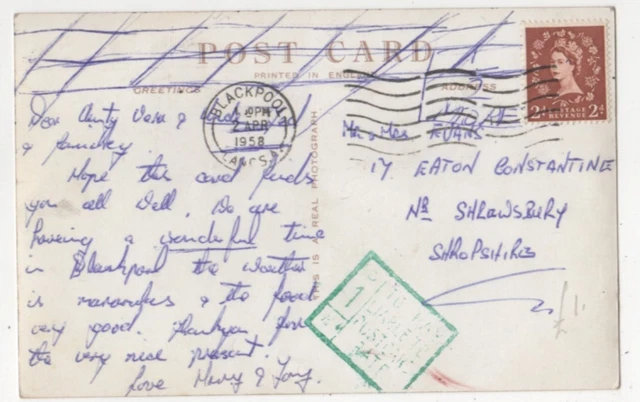 POST CARD
PRINTED IN ENGLAND
GREETINGS
ADDRESS
THIS IS A REAL PHOTOGRAPH
BLACKPOOL
PM
2 APR
1958
LANCS.
POSTAGE REVENUE
2d 2d
Dear Aunty Vera &
& family.
Hope this card finds
you all well, we are
having a wonderful time
in Blackpool the weather
is marvellous & the food
very good. Thankyou for
the very nice present.
love Mary & Tony.
Mr & Mrs EVANS
17 EATON CONSTANTINE
NR SHREWSBURY
SHROPSHIRE
1
TO PAY
POSTAGE
RATE
£1